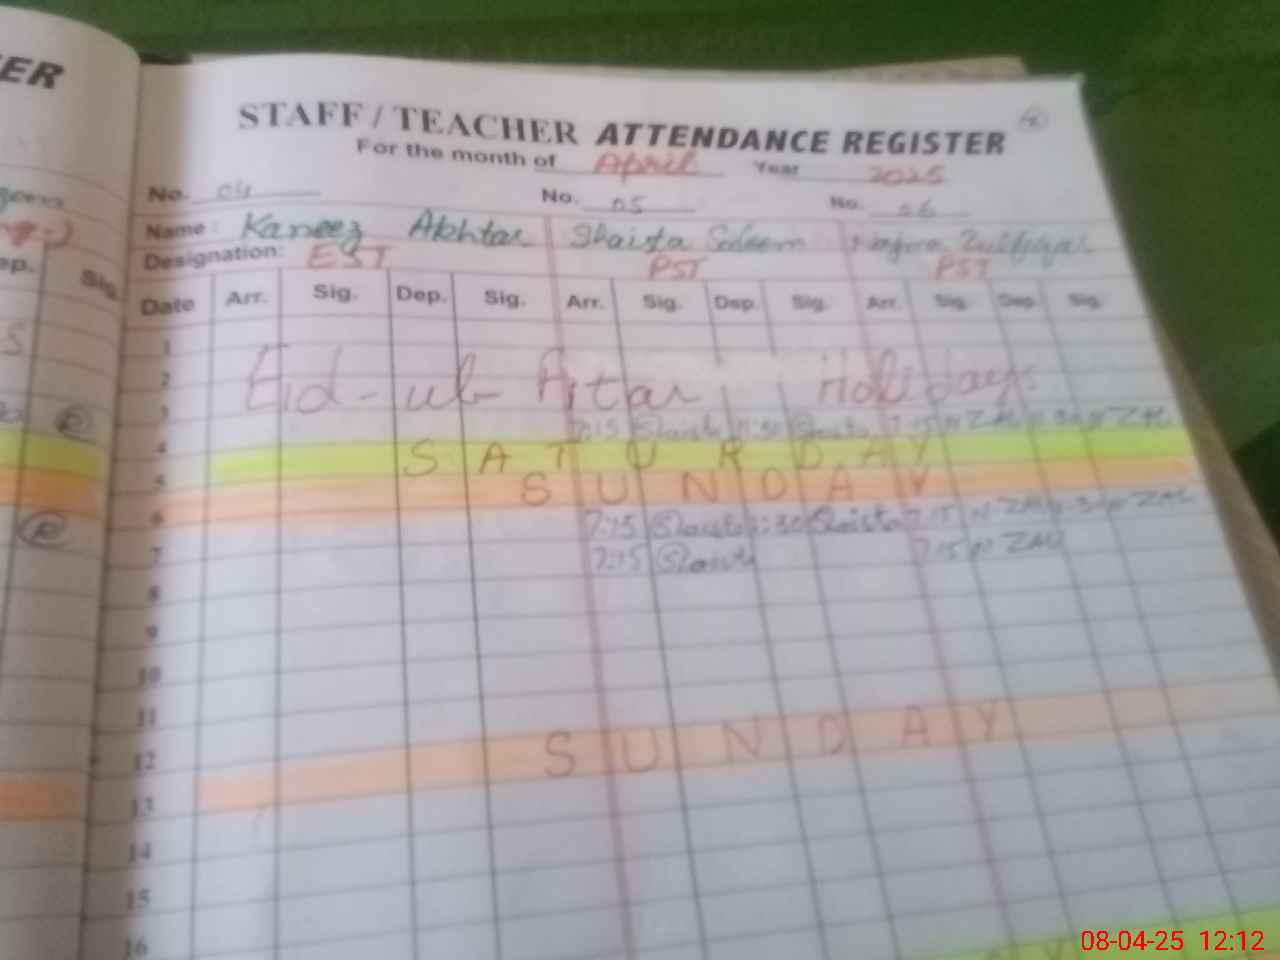 ER
STAFF / TEACHER ATTENDANCE REGISTER
For the month of April Year 2025
No. 04 No. 05 No. 06
Name: Kaneez Akhtar Shaista Saleem Najma Zulfiqar
Designation: EST PST PST
ep. Sig.
Date Arr. Sig. Dep. Sig. Arr. Sig. Dep. Sig. Arr. Sig. Dep. Sig.
1
2 Eid-ul-Fitar Holidays
3 7:15 Shaista Shaista 7:15
4 SATURDAY
5 SUNDAY
6 7:15 Shaista 1:30 Shaista 7:15
7 7:15 Shaista 7:15
8
9
10
11
12 SUNDAY
13
14
15
16
08-04-25 12:12